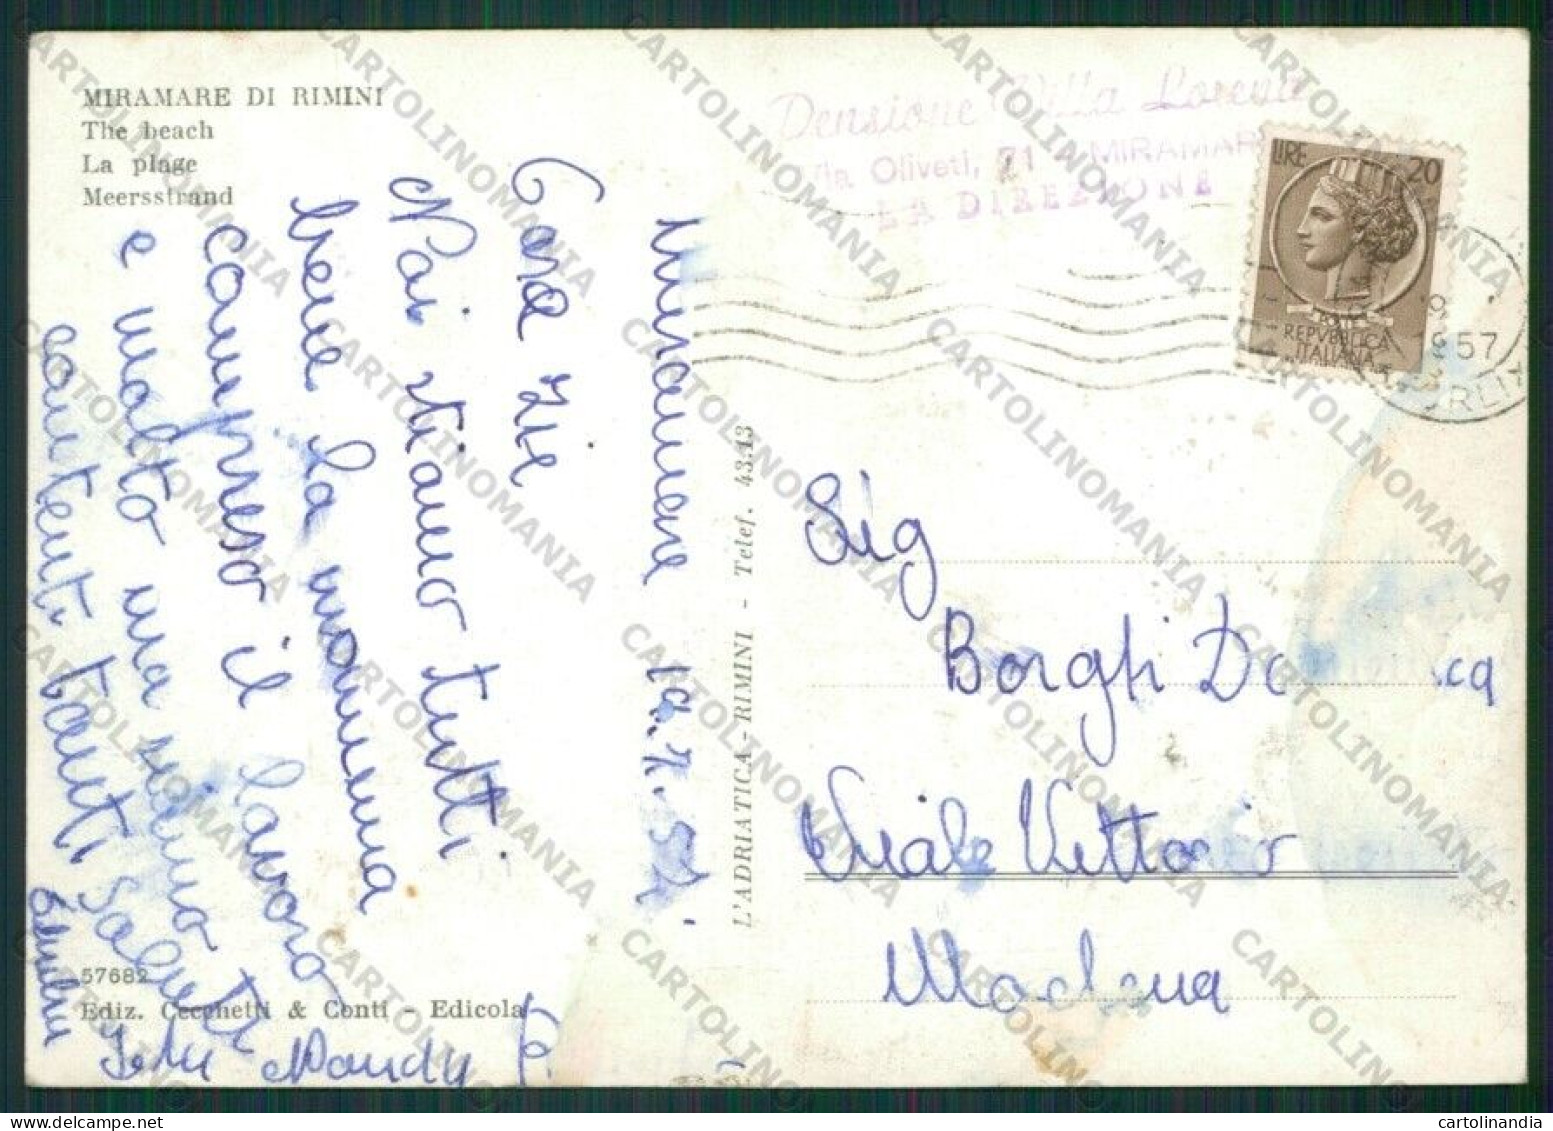 MIRAMARE DI RIMINI
The beach
La plage
Meersstrand
Miramare 19.7.57
Cara Zie
Noi stiamo tutti
bene la mamma
compreso il lavoro
e molto ma siamo
contenti tanti saluti
Nandy
57682
Ediz. Cecchetti & Conti - Edicola
L'ADRIATICA - RIMINI - Telef. 43.13
Pensione Villa Loreva
Via Oliveti, 71 - MIRAMAR
LA DIREZIONE
LIRE 20
REPVBBLICA
ITALIANA
1957
FORLI
Sig
Borghi Do ca
Viale Vittorio
Modena
CARTOLINOMANIA
cartolinandia